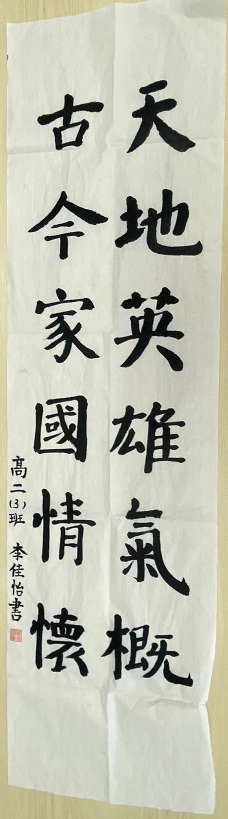 天地英雄氣概
古今家國情懷
高二(3)班 李佳怡書